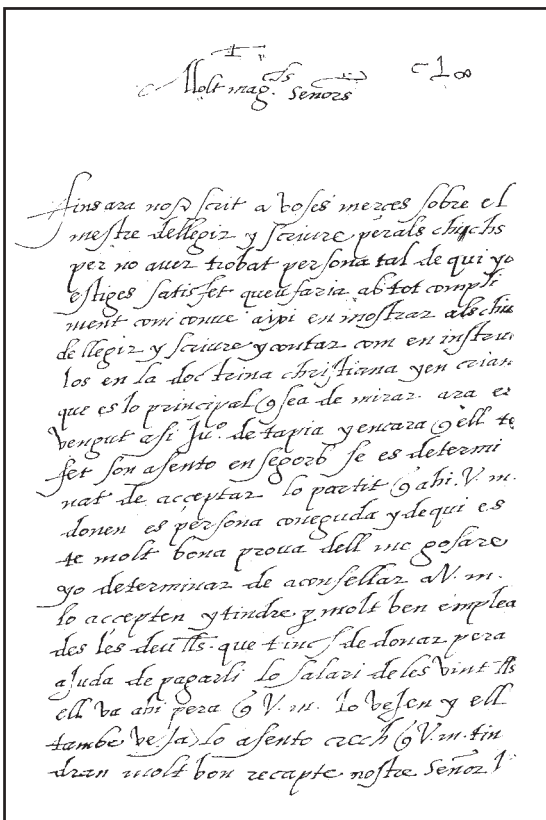 Molt mag.cs Señors
fins ara no q scrit a voses merces sobre el
mestre de llegir y scriure perals chichs
per no aver trobat persona tal de qui yo
estiges satisfet queu faria ab tot compli
ment com conve aixi en mostrar als chi
de llegir y scriure y contar com en instru
los en la doctrina christiana y en crian
que es lo principal q sea de mirar. ara es
vengut asi Ju.o de tapia y encara q ell te
fet son asento en segorb se es determi
nat de acceptar lo partit q ahi. V. m.
donen es persona coneguda y de qui es
te molt bona prova dell me gosare
yo determinar de aconsellar a V. m.
lo accepten y tindre p molt ben emplea
des les deu lls. que tinch de donar pera
ajuda de pagarli lo salari de les vint lls
ell va ahi pera q V. m. lo vejen y ell
tambe veja lo asento crech q V. m. tin
dran molt bon recapte nostre Señor